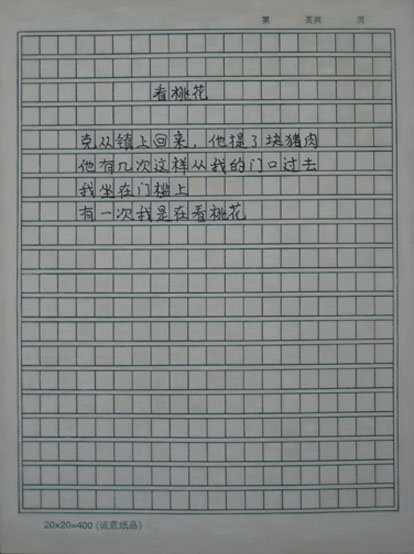 第 页共 页
看桃花
克从镇上回来，他提了块猪肉
他有几次这样从我的门口过去
我坐在门槛上
有一次我是在看桃花
20×20=400 (诚意纸品)